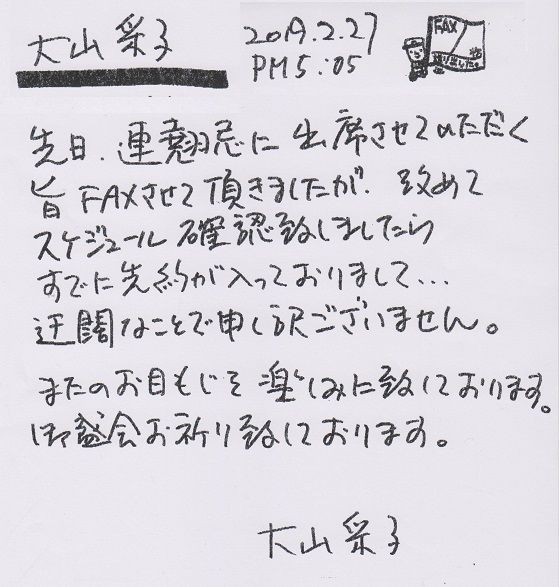 大山采子
2019.2.27
PM5:05
FAX
先日、連翹忌に出席させていただく
旨FAXさせて頂きましたが、改めて
スケジュール確認致しましたら
すでに先約が入っておりまして…
迂闊なことで申し訳ございません。
またのお目もじを楽しみに致しております。
御盛会お祈り致しております。
大山采子